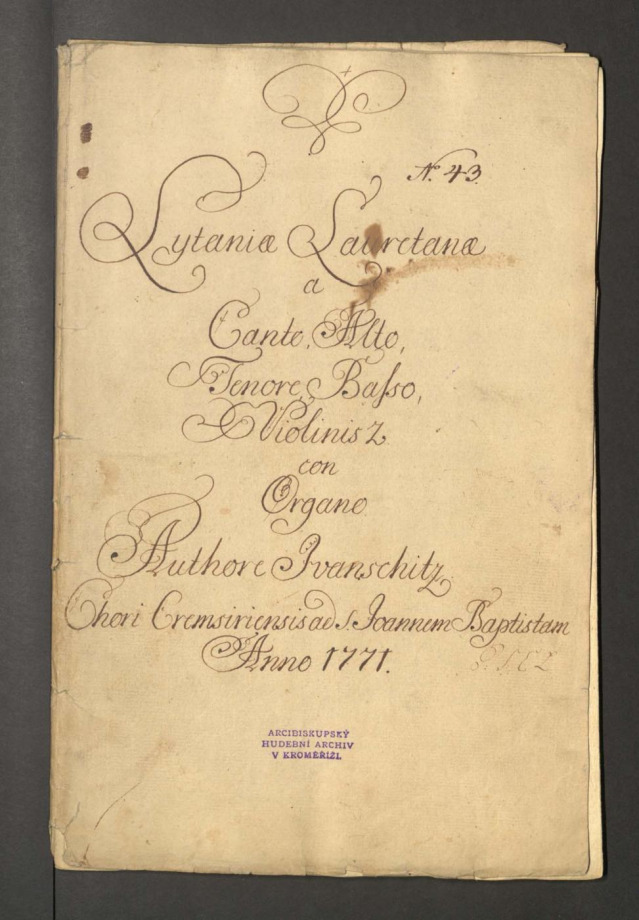 N. 43.
Lytaniæ Lauretanæ
a
Canto, Alto,
Tenore, Baſso,
Violinis 2
con
Organo
Authore Ivanschitz
Chori Cremsiriensis ad S. Joannem Baptistam
Anno 1771.
ARCIBISKUPSKÝ
HUDEBNÍ ARCHIV
V KROMĚŘÍŽI.